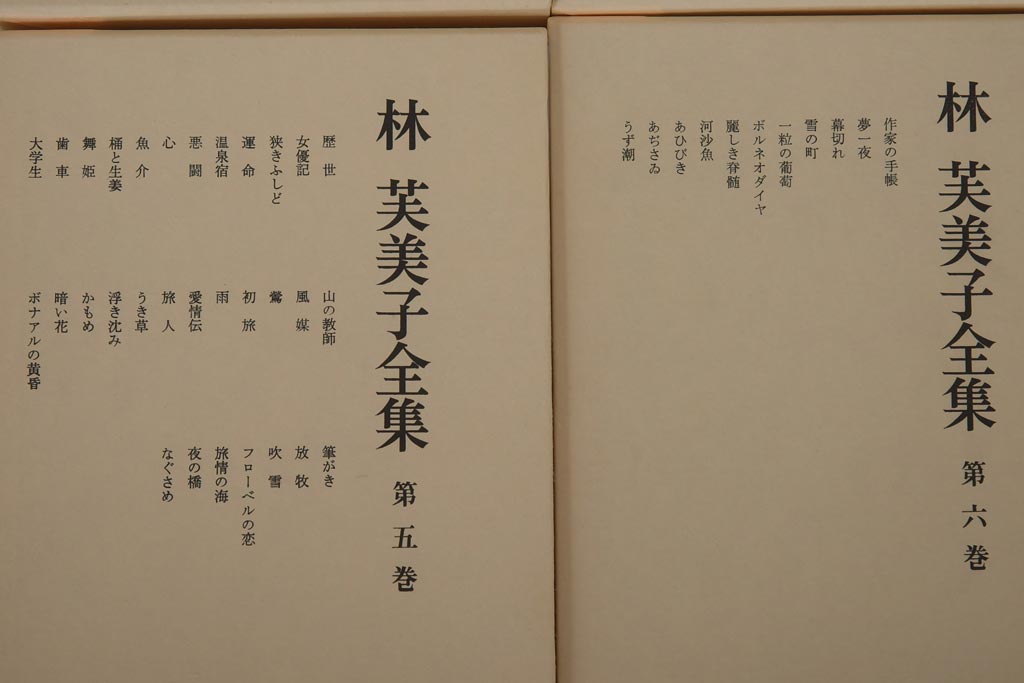 林 芙美子全集 第六巻
作家の手帳
夢一夜
幕切れ
雪の町
一粒の葡萄
ボルネオダイヤ
麗しき脊髄
河沙魚
あひびき
あぢさゐ
うず潮
林 芙美子全集 第五巻
歴世
女優記
狭きふしど
運命
温泉宿
悪闘
心
魚介
桶と生姜
舞姫
歯車
大学生
山の教師
風媒
鶯
初旅
雨
愛情伝
旅人
うき草
浮き沈み
かもめ
暗い花
ボナアルの黄昏
筆がき
放牧
吹雪
フローベルの恋
旅情の海
夜の橋
なぐさめ